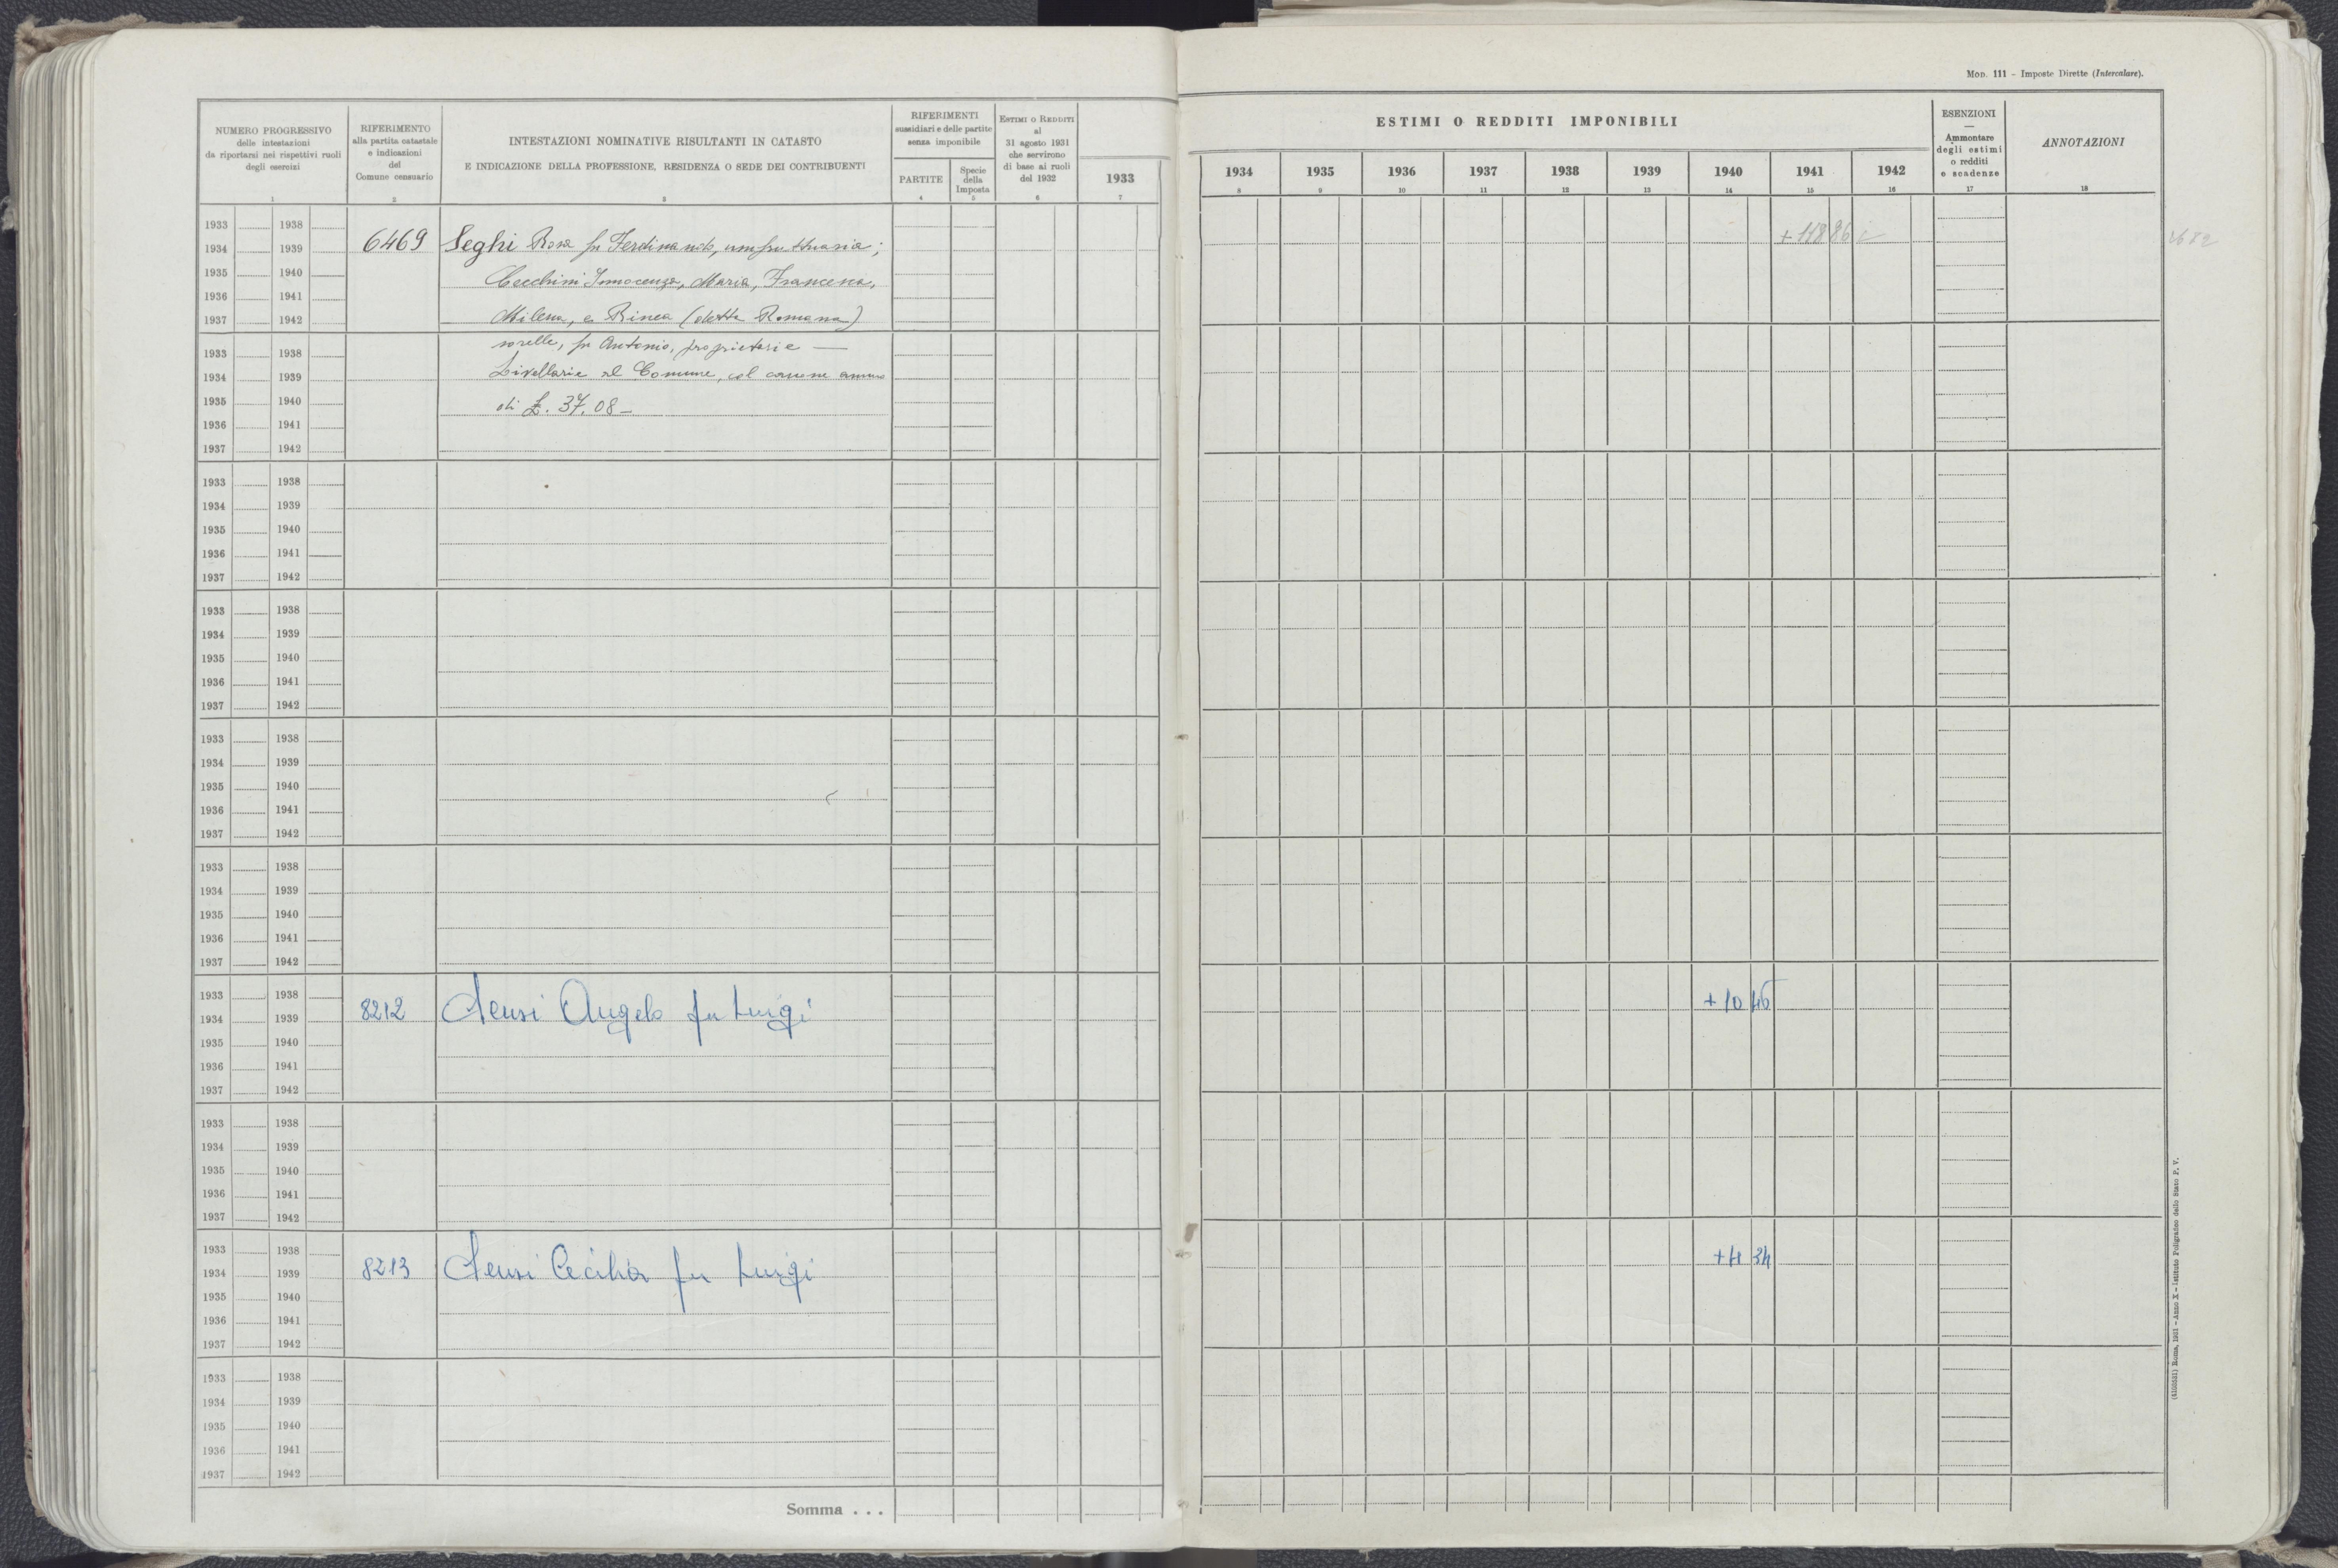 MOD. 111 - Imposte Dirette (Intercalare).
NUMERO PROGRESSIVO
delle intestazioni
da riportarsi nei rispettivi ruoli
degli esercizi
1
RIFERIMENTO
alla partita catastale
e indicazioni
del
Comune censuario
2
INTESTAZIONI NOMINATIVE RISULTANTI IN CATASTO
E INDICAZIONE DELLA PROFESSIONE, RESIDENZA O SEDE DEI CONTRIBUENTI
3
RIFERIMENTI
sussidiari e delle partite
senza imponibile
PARTITE
4
Specie
della
Imposta
5
ESTIMI O REDDITI
al
31 agosto 1931
che servirono
di base ai ruoli
del 1932
6
1933
7
ESTIMI O REDDITI IMPONIBILI
1934 1935 1936 1937 1938 1939 1940 1941 1942
8 9 10 11 12 13 14 15 16
ESENZIONI
—
Ammontare
degli estimi
o redditi
e scadenze
17
ANNOTAZIONI
18
1933 1938
1934 1939 6469 Seghi Rosa fu Ferdinando, usufruttuaria; + 118 86
1935 1940 Cecchini Innocenza, Maria, Francesca,
1936 1941
1937 1942 Milena, e Rinea (detta Romana)
sorelle, fu Antonio, proprietarie —
1933 1938
1934 1939 Livellarie al Comune, col canone annuo
1935 1940 di £. 37.08 —
1936 1941
1937 1942
1933 1938
1934 1939
1935 1940
1936 1941
1937 1942
1933 1938
1934 1939
1935 1940
1936 1941
1937 1942
1933 1938
1934 1939
1935 1940
1936 1941
1937 1942
1933 1938
1934 1939
1935 1940
1936 1941
1937 1942
1933 1938
1934 1939 8212 Sensi Angelo fu Luigi + 10 46
1935 1940
1936 1941
1937 1942
1933 1938
1934 1939
1935 1940
1936 1941
1937 1942
1933 1938
1934 1939 8213 Sensi Cecilia fu Luigi + 4 34
1935 1940
1936 1941
1937 1942
1933 1938
1934 1939
1935 1940
1936 1941
1937 1942
Somma . . .
(4103531) Roma, 1931 - Anno X - Istituto Poligrafico dello Stato P. V.